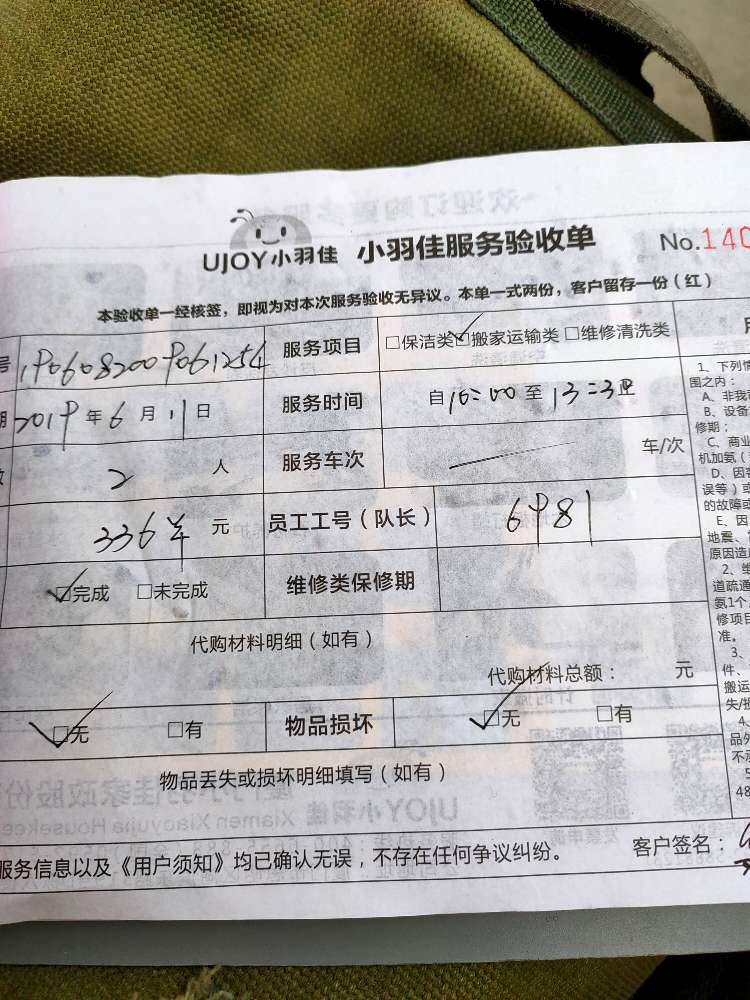 UJOY小羽佳 小羽佳服务验收单 No.140
本验收单一经核签，即视为对本次服务验收无异议。本单一式两份，客户留存一份（红）
号 服务项目 □保洁类 ☑搬家运输类 □维修清洗类
期 2019年6月11日 服务时间 自10:00至13:30
2人 服务车次 车/次
336 元 员工工号（队长） 6981
☑完成 □未完成 维修类保修期
代购材料明细（如有）
代购材料总额： 元
☑无 □有 物品损坏 ☑无 □有
物品丢失或损坏明细填写（如有）
服务信息以及《用户须知》均已确认无误，不存在任何争议纠纷。 客户签名：
1、下列情
围之内：
A、非我
B、设备
修期；
C、商业
机加氨（
D、因客
误等）或
的故障或
E、因
地震、
原因造
2、维
道疏通
氨1个
修项目
准。
3、
件、
搬运
失/损
4、
品外
不承
5
48